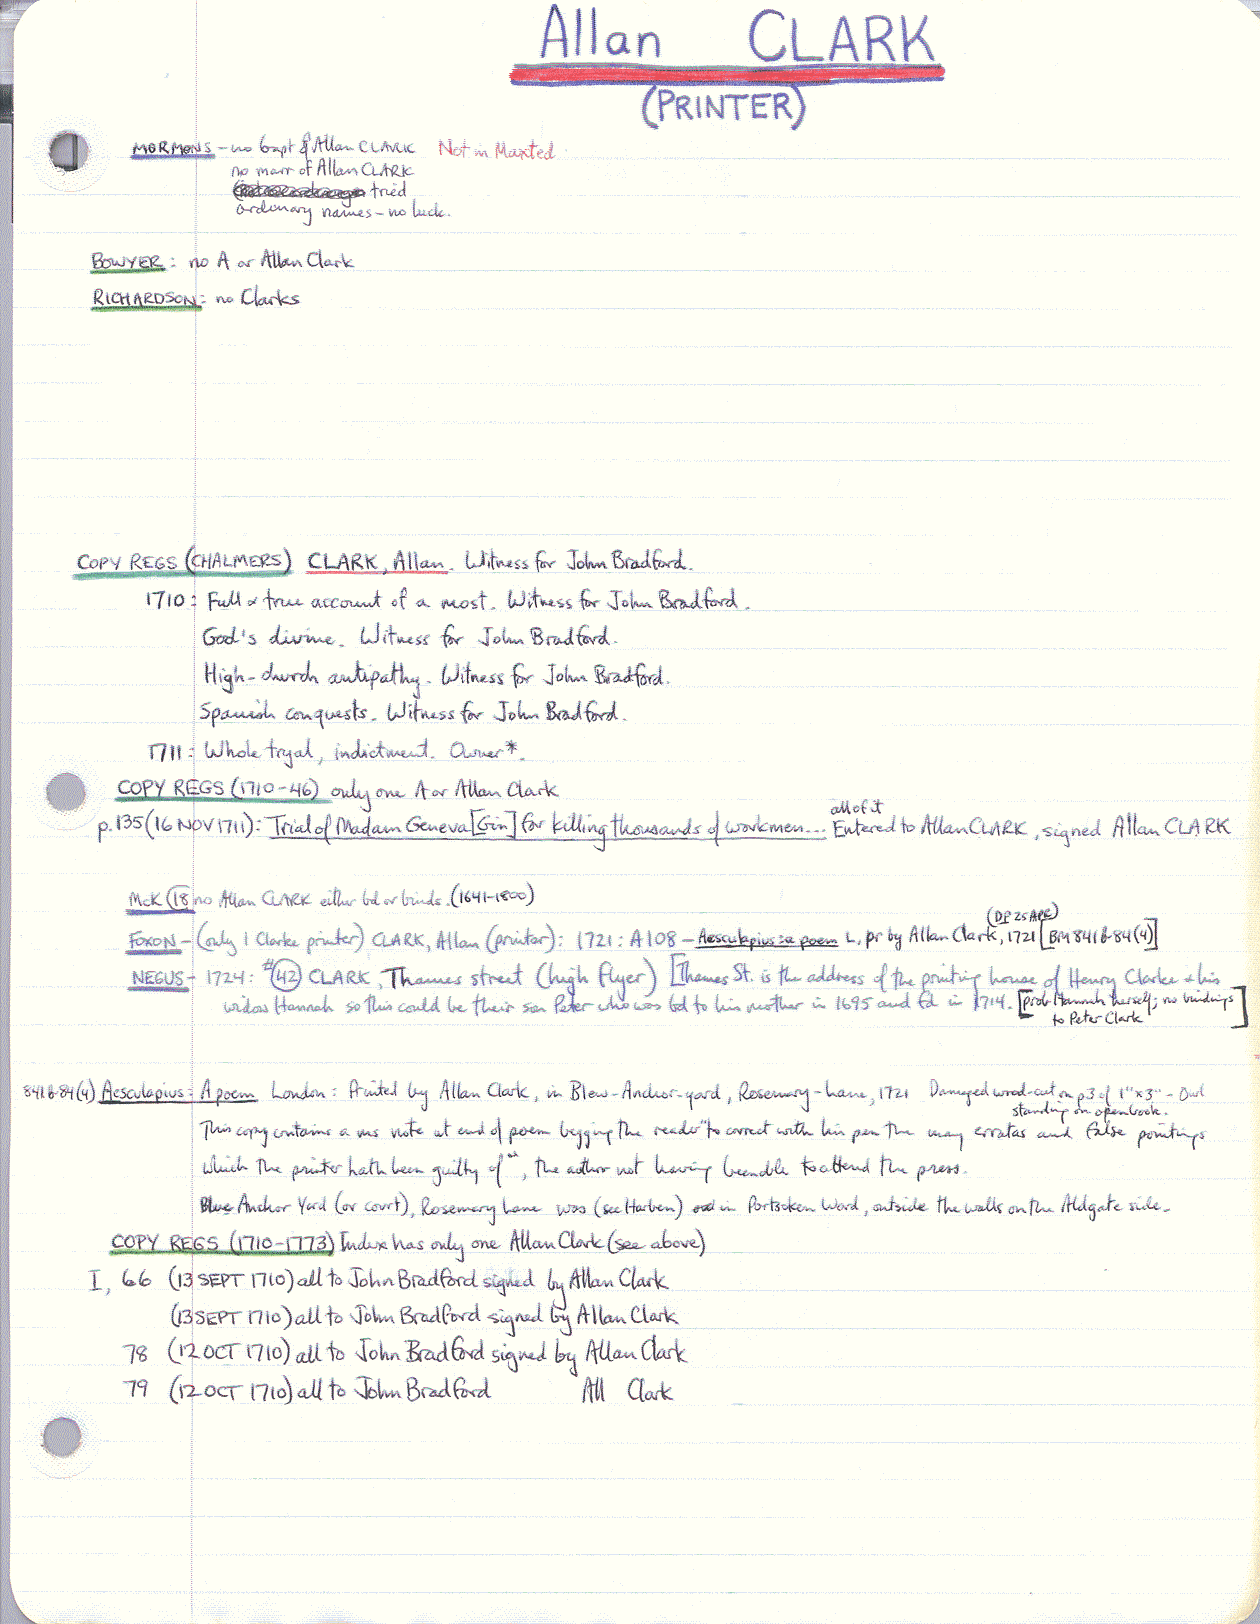 Allan CLARK
(PRINTER)
MORMONS - no bapt of Allan CLARK Not in Maxted
no marr of Allan CLARK
tried
ordinary names - no luck.
BOWYER: no A or Allan Clark
RICHARDSON: no Clarks
COPY REGS (CHALMERS) CLARK, Allan. Witness for John Bradford.
1710: Full & true account of a most. Witness for John Bradford.
God's divine. Witness for John Bradford.
High-church antipathy. Witness for John Bradford.
Spanish conquests. Witness for John Bradford.
1711: Whole tryal, indictment. Owner*.
COPY REGS (1710-46) only one A or Allan Clark
all of it
p.135 (16 NOV 1711): Trial of Madam Geneva [Gin] for killing thousands of workmen... Entered to Allan CLARK, signed Allan CLARK
McK (18 no Allan CLARK either bd or binds. (1641-1800)
(DP 25 APR)
FOXON - (only 1 Clarke printer) CLARK, Allan (printer): 1721: A108 - Aesculapius: a poem L, pr by Allan Clark, 1721 [BM 841 b-84(4)]
NEGUS - 1724: #42 CLARK, Thames street (high flyer) [Thames St. is the address of the printing house of Henry Clarke & his
widow Hannah so this could be their son Peter who was bd to his mother in 1695 and fd in 1714. [prob Hannah herself; no bindings
to Peter Clark]
841 b-84(4) Aesculapius: A poem London: Printed by Allan Clark, in Blew-Anchor-yard, Rosemary-lane, 1721 Damaged wood-cut on p3 of 1"x3" - Owl
standing on open book.
This copy contains a ms note at end of poem begging the reader "to correct with his pen the many erratas and false pointings
which the printer hath been guilty of", the author not having been able to attend the press.
Blue Anchor Yard (or court), Rosemary Lane was (see Harben) in Portsoken Ward, outside the walls on the Aldgate side.
COPY REGS (1710-1773) Index has only one Allan Clark (see above)
I, 66 (13 SEPT 1710) all to John Bradford signed by Allan Clark
(13 SEPT 1710) all to John Bradford signed by Allan Clark
78 (12 OCT 1710) all to John Bradford signed by Allan Clark
79 (12 OCT 1710) all to John Bradford All Clark